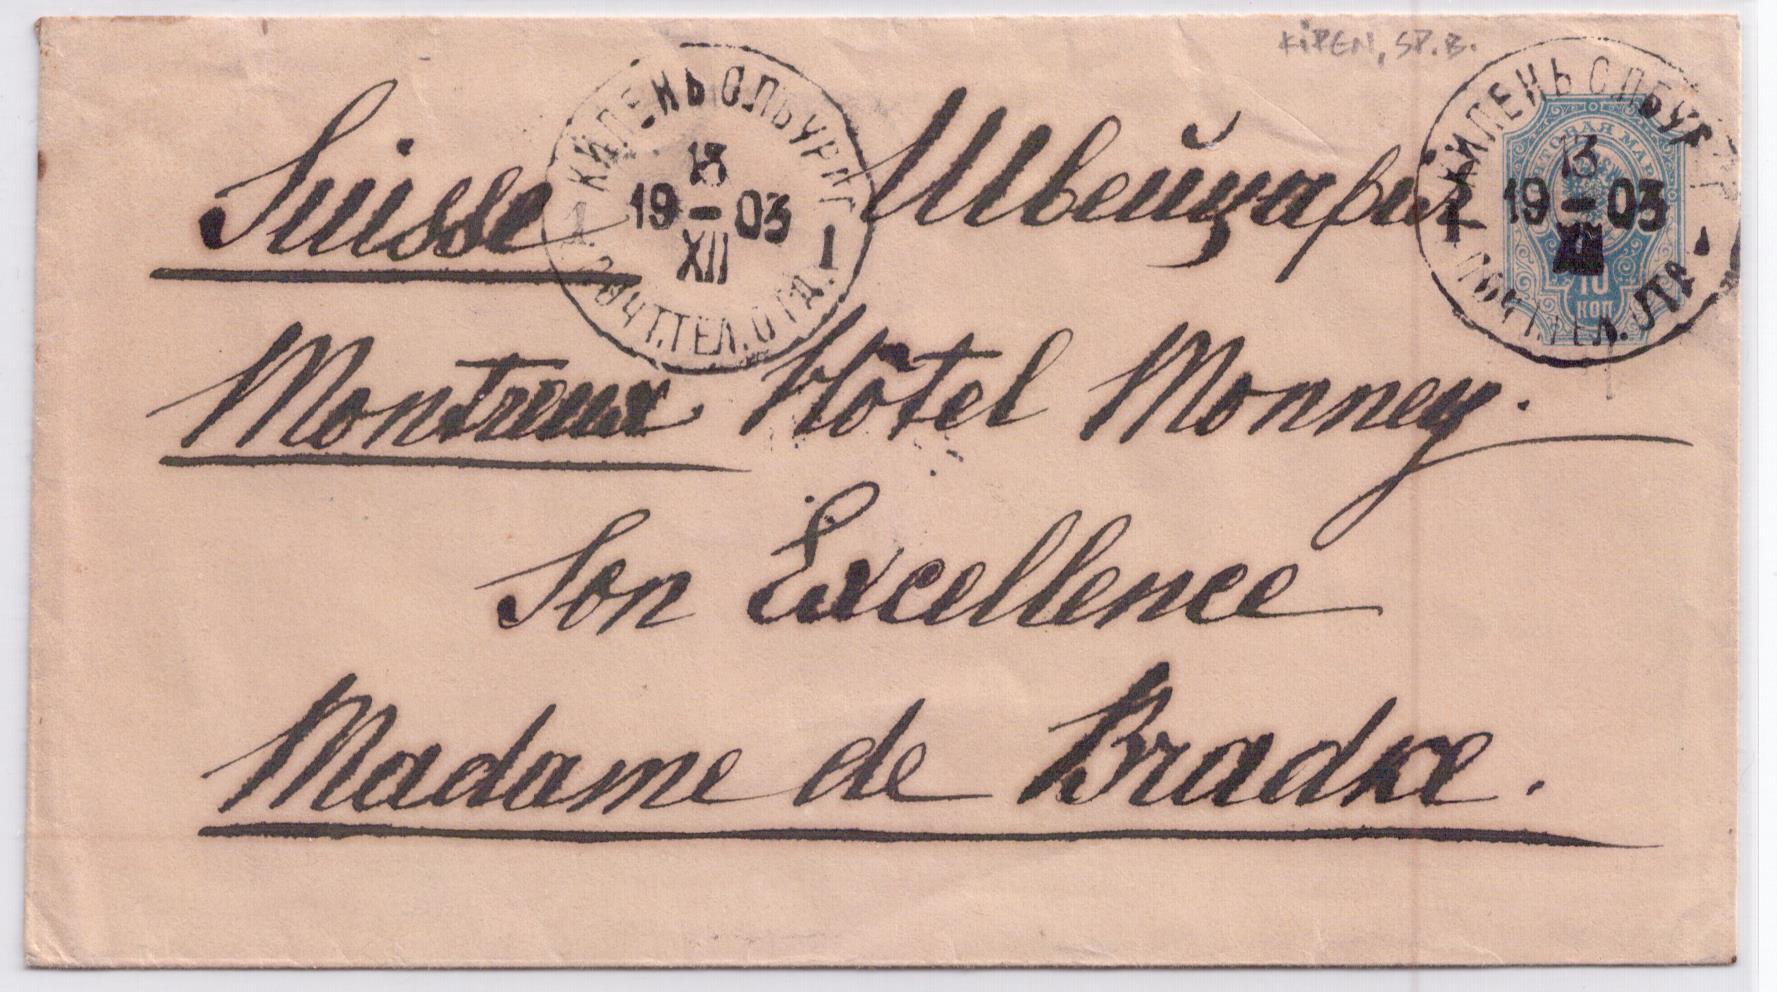 KIPEN, SP.B.
КИПЕНЬ С.ПБУРГ.
13
19–03
XII
1 1
ПОЧТ.ТЕЛ.ОТД.
КИПЕНЬ С.ПБУРГ.
13
19–03
XII
1
ПОЧТ.ТЕЛ.ОТД.
ПОЧТОВАЯ МАРКА
10
КОП
Suisse Швейцария
Montreux Hôtel Monney.
Son Excellence
Madame de Bradke.